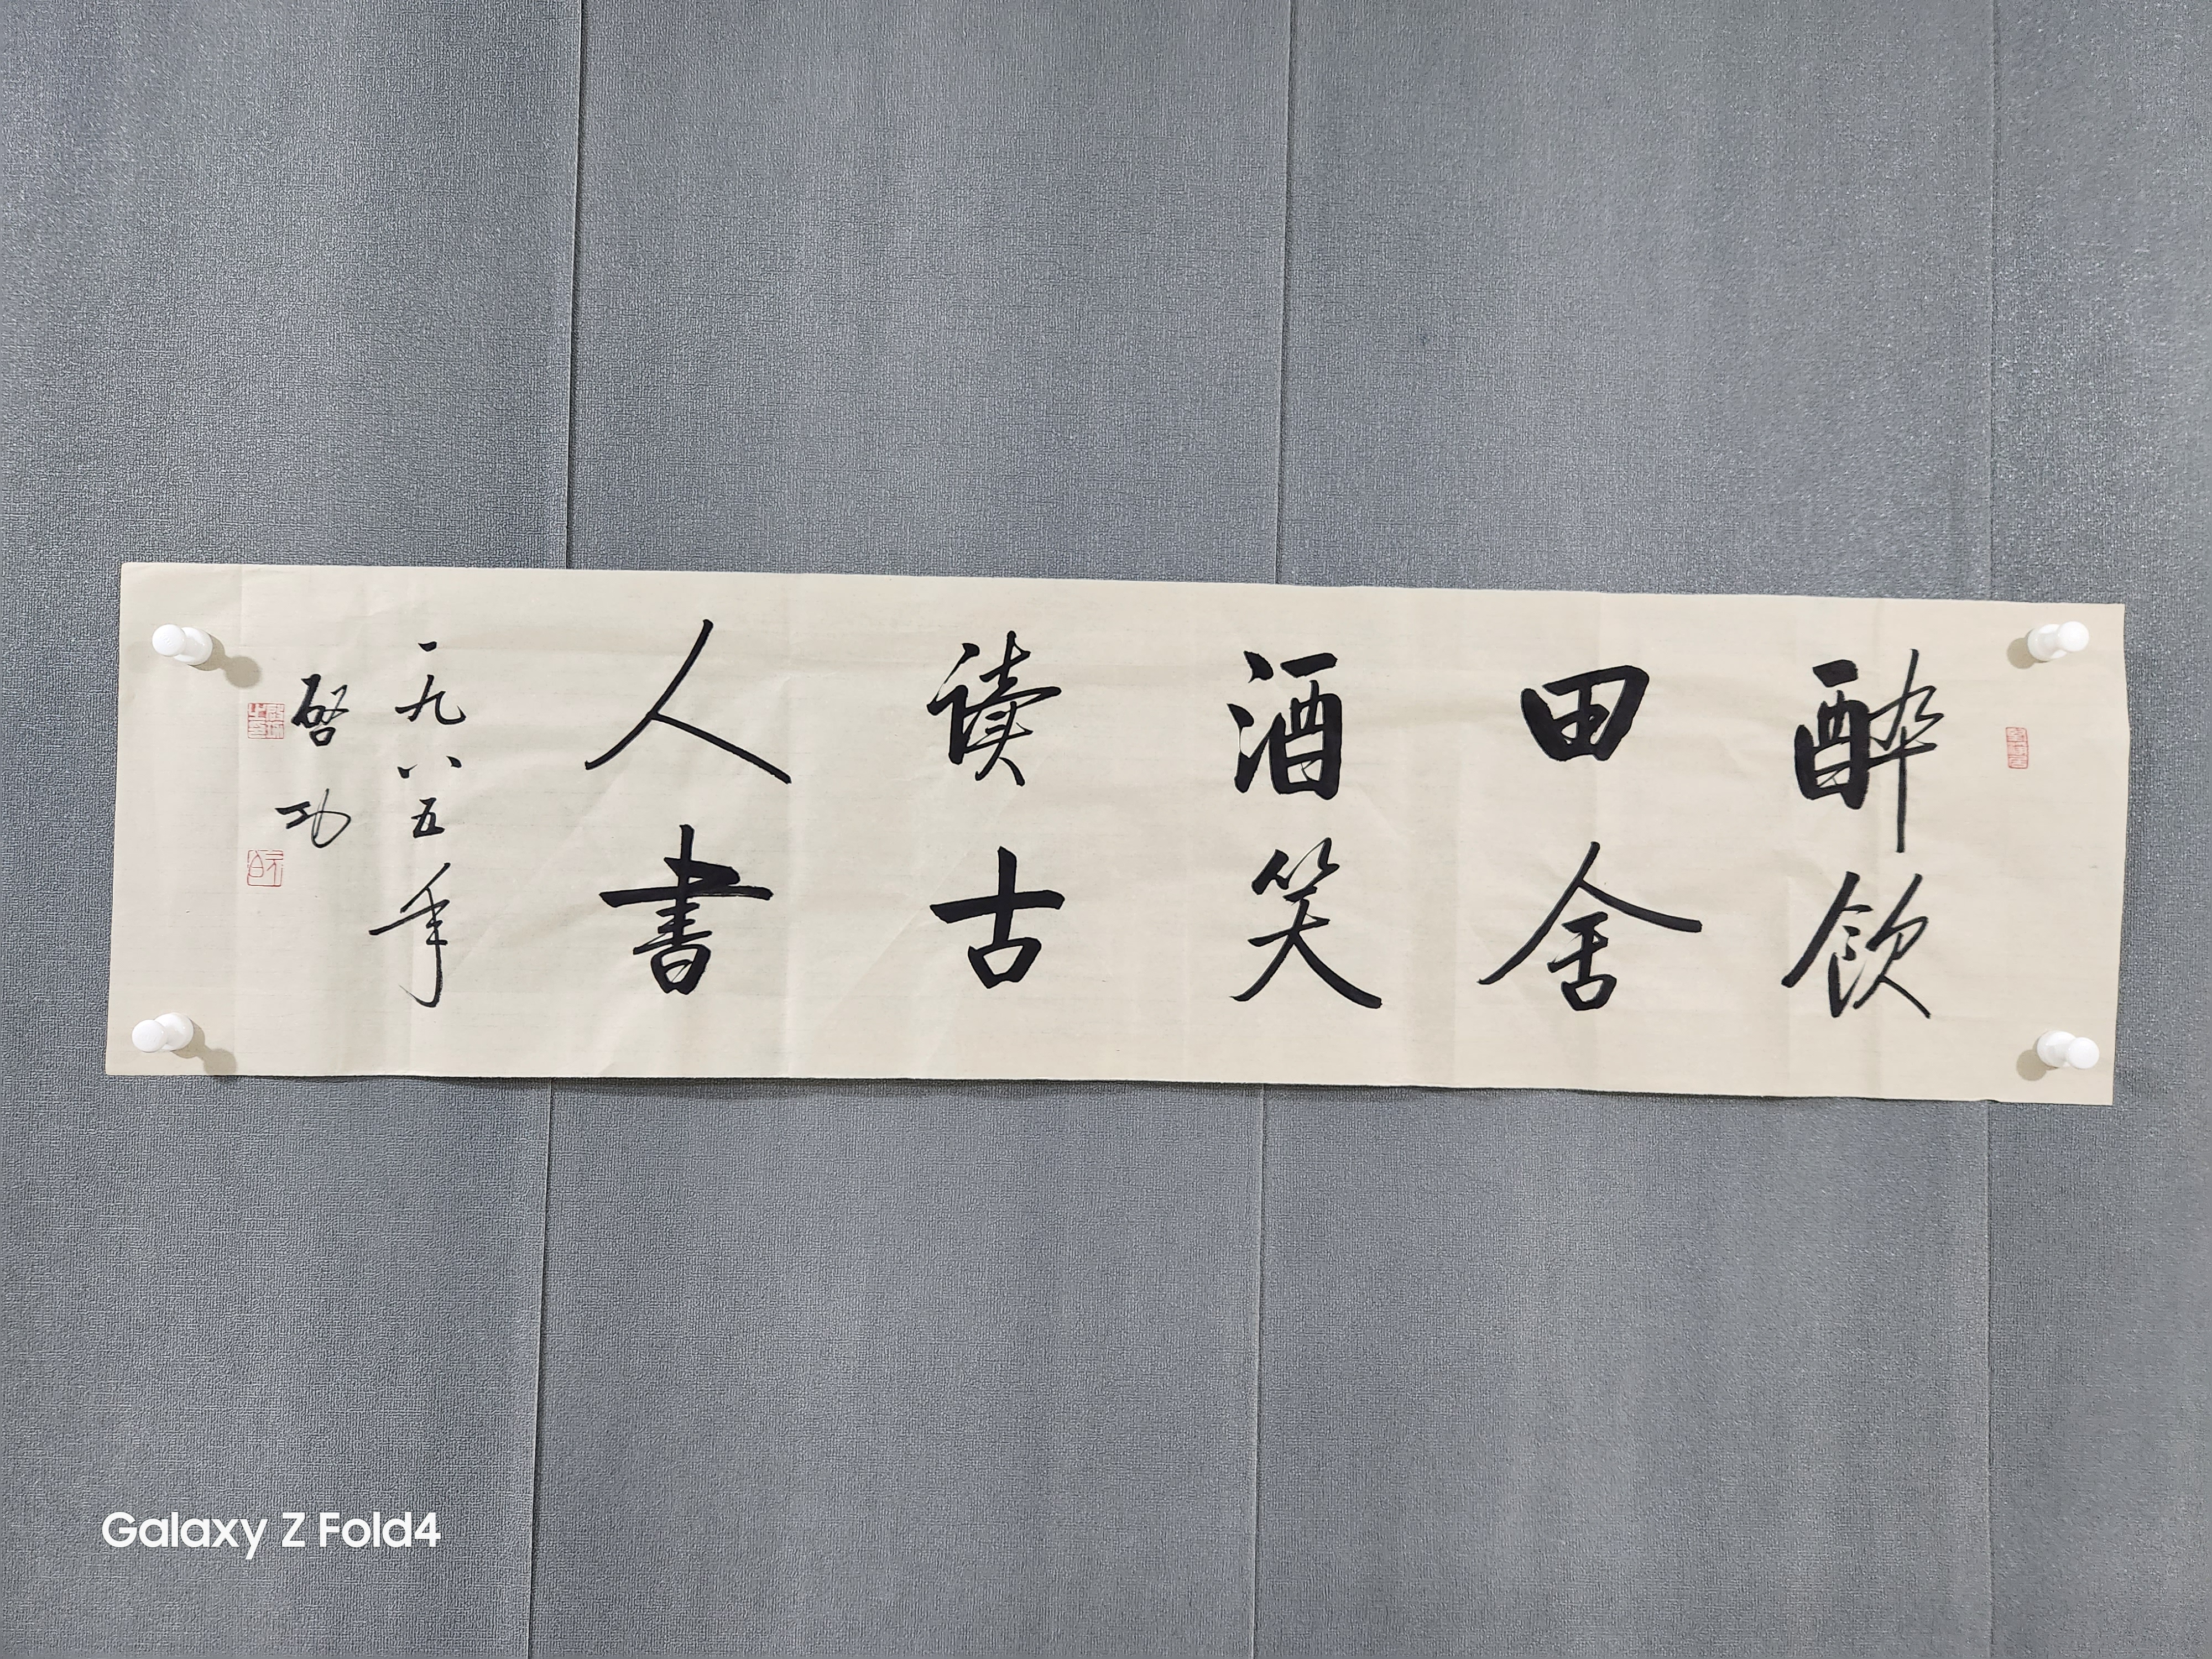 醉飲
田舍
酒笑
读古
人書
一九八五年
啓功
Galaxy Z Fold4